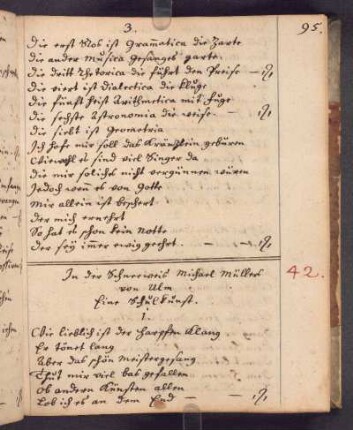 3.
95.
die erst Ros ist Gramatica die Zarte
die ander Musica gesanges Zarte
die dritt Rhetorica die führt den Preise
die viert ist Dialectica die kluge
die fünfft heist Arithmetica mit fuge
die sechste Astronomia die weise
die siebt ist Geometria
Ich hofe mir soll das Kräntzlein gebüren
Wiewohl es sind viel Singer da
die mir solichs nicht vergünnen würen
Jedoch wenn es von Gotte
Mir allein ist beschert
der mich ernehrt
So hat es schon kein notte
der sey immer ewig geehrt.
In der Schneeweis Michael Müllers
von Ulm
Eine Schulkunst.
42.
1.
Wie lieblich ist der Harpffen Klang
Er tönet lang
Aber das schön meistergesang
Thut mir viel bas gefallen
Ob andern Künsten allen
Lob ich es an dem End